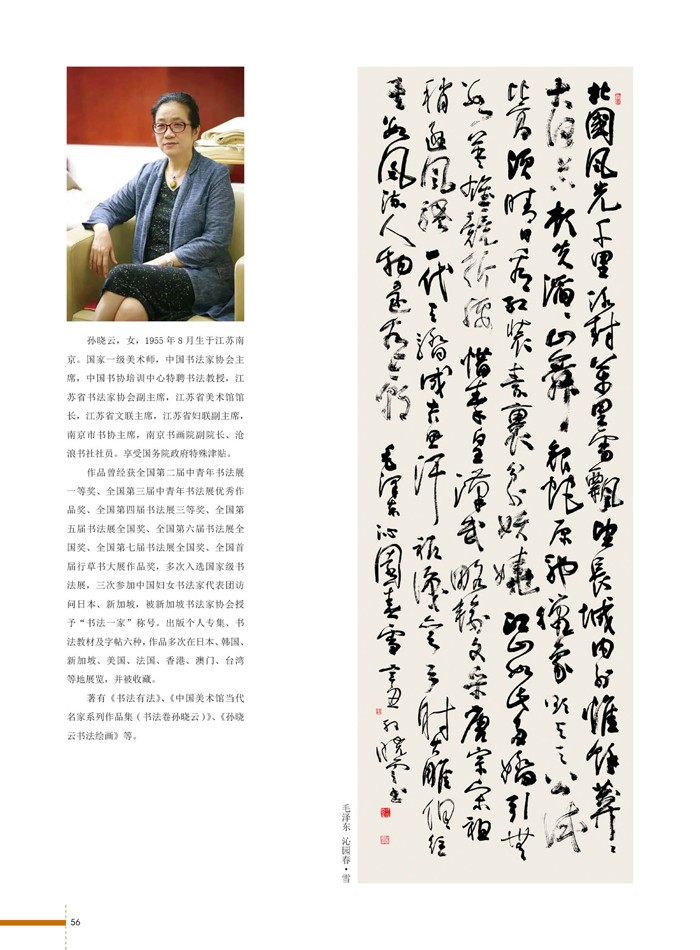 孙晓云，女，1955 年 8 月生于江苏南
京。国家一级美术师，中国书法家协会主
席，中国书协培训中心特聘书法教授，江
苏省书法家协会副主席，江苏省美术馆馆
长，江苏省文联主席，江苏省妇联副主席，
南京市书协主席，南京书画院副院长、沧
浪书社社员。享受国务院政府特殊津贴。
作品曾经获全国第二届中青年书法展
一等奖、全国第三届中青年书法展优秀作
品奖、全国第四届书法展三等奖、全国第
五届书法展全国奖、全国第六届书法展全
国奖、全国第七届书法展全国奖、全国首
届行草书大展作品奖，多次入选国家级书
法展，三次参加中国妇女书法家代表团访
问日本、新加坡，被新加坡书法家协会授
予“书法一家”称号。出版个人专集、书
法教材及字帖六种，作品多次在日本、韩国、
新加坡、美国、法国、香港、澳门、台湾
等地展览，并被收藏。
著有《书法有法》、《中国美术馆当代
名家系列作品集（书法卷孙晓云）》、《孙晓
云书法绘画》等。
北國风光千里冰封万里雪飘望长城内外惟馀莽〻
大河上下顿失滔〻山舞银蛇原驰蜡象欲与天公试
比高须晴日看红装素裹分外妖娆江山如此多娇引无
数英雄竞折腰惜秦皇汉武略输文采唐宗宋祖
稍逊风骚一代天骄成吉思汗祗识弯弓射大雕俱往
矣数风流人物还看今朝 毛泽东沁园春雪 辛丑 孙晓云书
毛泽东 沁园春·雪
56